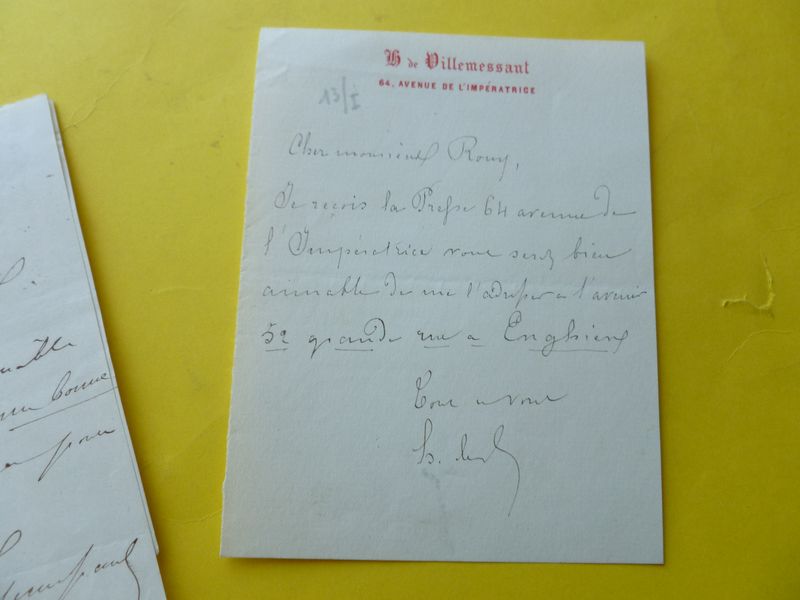 H de Villemessant
64, AVENUE DE L'IMPÉRATRICE
13/I
Cher monsieur Rouy,
Je reçois la Presse 64 avenue de
l'Impératrice vous serez bien
aimable de me l'adresser a l'avenir
52 grande rue a Enghien
Tout a vous
h. de
bonne
pour